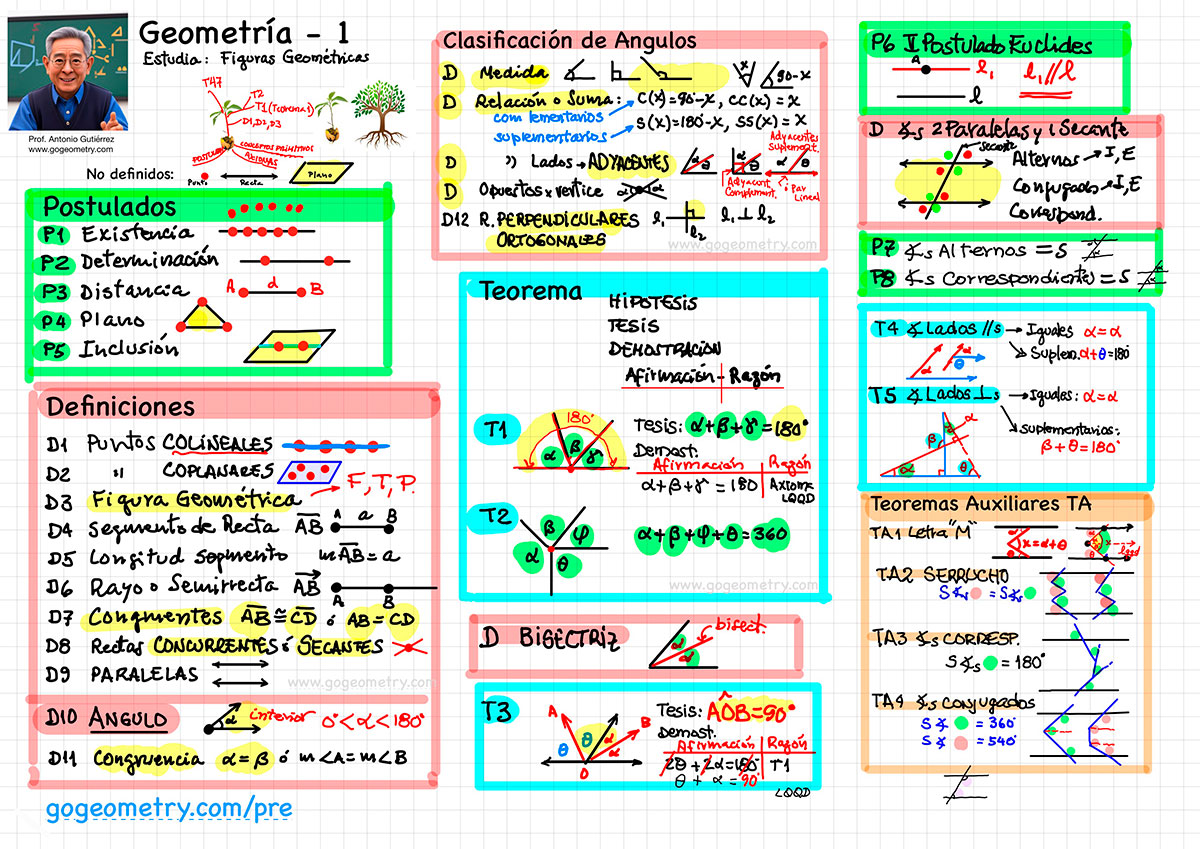 Geometría - 1
Estudia: Figuras Geométricas
Prof. Antonio Gutiérrez
www.gogeometry.com
T47
T2
T1 (Teorema 1)
D1, D2, D3
POSTULADO
CONCEPTOS PRIMITIVOS
AXIOMAS
No definidos:
Punto
Recta
Plano
Postulados
P1 Existencia
P2 Determinación
P3 Distancia A d B
P4 Plano
P5 Inclusión
Definiciones
D1 Puntos COLINEALES
D2 " COPLANARES
D3 Figura Geométrica → F, T, P.
D4 Segmento de Recta AB A a B
D5 Longitud segmento mAB = a
D6 Rayo o Semirrecta AB A B
D7 Congruentes AB ≅ CD ó AB = CD
D8 Rectas CONCURRENTES ó SECANTES
D9 PARALELAS
www.gogeometry.com
D10 ANGULO α interior 0° < α < 180°
D11 Congruencia α = β ó m∠A = m∠B
gogeometry.com/pre
Clasificación de Angulos
D Medida x 90-x
D Relación o Suma: C(x) = 90-x, CC(x) = x
complementarios
suplementarios S(x) = 180-x, SS(x) = x
D " Lados → ADYACENTES α θ α θ α θ
Adyacentes
Suplement.
Adyacent
Complement.
Par
Lineal
D Opuestos x vertice
D12 R. PERPENDICULARES l1 l2 l1 ⊥ l2
ORTOGONALES
www.gogeometry.com
Teorema
HIPOTESIS
TESIS
DEMOSTRACION
Afirmación - Razón
T1 180° α β γ
Tesis: α+β+γ = 180°
Demost.
Afirmación Razón
α+β+γ = 180 Axioma
LQQD
T2 β φ α θ
α+β+φ+θ = 360
www.gogeometry.com
D BISECTRIZ α α bisect.
T3 A B O θ θ α α
Tesis: AOB = 90°
Demost.
Afirmación Razón
2θ + 2α = 180° T1
θ + α = 90°
LQQD
P6 V Postulado Euclides
A l1 l1 // l
l
D ∡s 2 Paralelas y 1 Secante
secante
Alternos → I, E
Conjugado → I, E
Correspond.
P7 ∡s Alternos = s
P8 ∡s Correspondientes = s
T4 ∡ Lados //s → Iguales α = α
Suplem. α+θ = 180°
α α θ
T5 ∡ Lados ⊥s → Iguales: α = α
suplementarios:
β + θ = 180°
α β θ α
Teoremas Auxiliares TA
TA1 Letra "M" α θ x = α+θ
TA2 SERRUCHO
S∡s = S∡s
TA3 ∡s CORRESP.
S∡s = 180°
TA4 ∡s conjugados
S∡ = 360°
S∡ = 540°